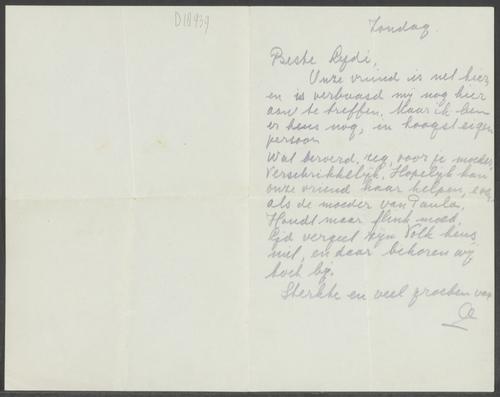 D18939
Zondag.
Beste Lydi,
Onze vriend is net hier
en is verbaasd mij nog hier
aan te treffen. Maar ik ben
er heus nog, in hoogst eigen
persoon
Wat beroerd, zeg, voor je moeder
Verschrikkelijk. Hopelijk kan
onze vriend haar helpen,
als de moeder van Paula.
Houdt maar flink moed,
vergeet zijn Volk heus
niet, en daar behoren wij
toch bij.
Sterkte en veel groeten van